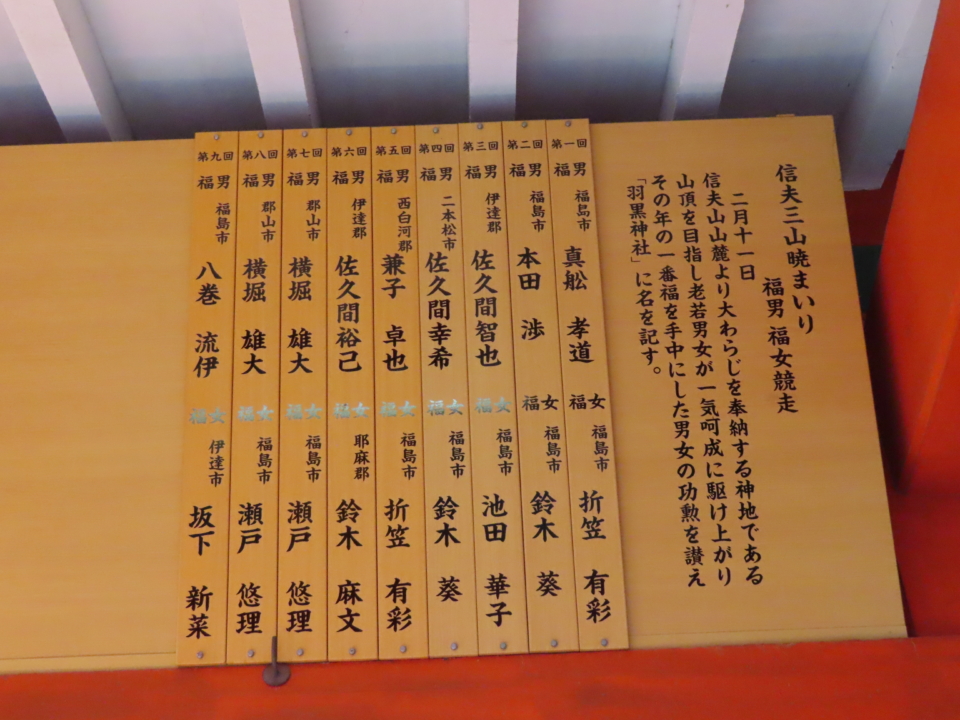 信夫三山暁まいり
福男 福女競走
二月十一日
信夫山山麓より大わらじを奉納する神地である
山頂を目指し老若男女が一気呵成に駆け上がり
その年の一番福を手中にした男女の功勲を讃え
「羽黒神社」に名を記す。
第一回 福男 福島市 真舩 孝道 福女 福島市 折笠 有彩
第二回 福男 福島市 本田 渉 福女 福島市 鈴木 葵
第三回 福男 伊達郡 佐久間智也 福女 福島市 池田 華子
第四回 福男 二本松市 佐久間幸希 福女 福島市 鈴木 葵
第五回 福男 西白河郡 兼子 卓也 福女 福島市 折笠 有彩
第六回 福男 伊達郡 佐久間裕己 福女 耶麻郡 鈴木 麻文
第七回 福男 郡山市 横堀 雄大 福女 福島市 瀬戸 悠理
第八回 福男 郡山市 横堀 雄大 福女 福島市 瀬戸 悠理
第九回 福男 福島市 八巻 流伊 福女 伊達市 坂下 新菜